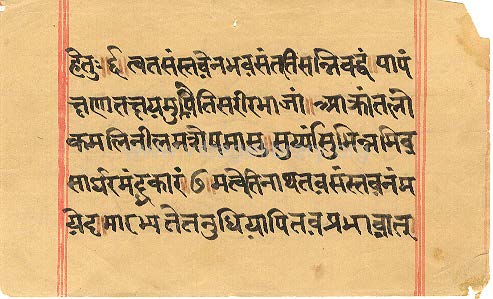 हेतुः ६ त्वतसंस्तवेनभवसंततीसन्निबद्धं पापं
क्षणातक्षयमुपैतिसरीरभाजां आक्रांतलो
कमलिनीलमशेषमासु सुर्यांसुभिन्नमिव
सार्वरमंधकारं ७ मत्वेतिनाथतवसंस्तवनंम
येदमारभ्यतेतनुधियापितवप्रभावात्